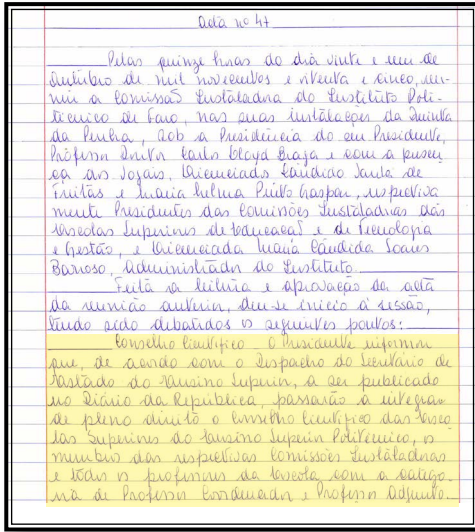 Acta nº 47
Pelas quinze horas do dia vinte e um de
Outubro de mil novecentos e oitenta e cinco, reu-
niu a Comissão Instaladora do Instituto Poli-
técnico de Faro, nas suas instalações da Quinta
da Penha, sob a Presidência do seu Presidente,
Professor Doutor Carlos Lloyd Braga e com a presen-
ça dos Vogais, Licenciados Cândido Varela de
Freitas e Maria Helma Pinto Gaspar, respectiva
mente Presidentes das Comissões Instaladoras das
Escolas Superiores de Educação e de Tecnologia
e Gestão, e Licenciada Maria Cândida Soares
Barroso, Administrador do Instituto.
Feita a leitura e aprovação da acta
da reunião anterior, deu-se início à sessão,
tendo sido debatidos os seguintes pontos:
Conselho Científico - O Presidente informou
que, de acordo com o Despacho do Secretário de
Estado do Ensino Superior, a ser publicado
no Diário da República, passarão a integrar
de pleno direito o Conselho Científico das Esco
las Superiores do Ensino Superior Politécnico, os
membros das respectivas Comissões Instaladoras
e todos os professores da Escola com a catego
ria de Professor Coordenador e Professor Adjunto.